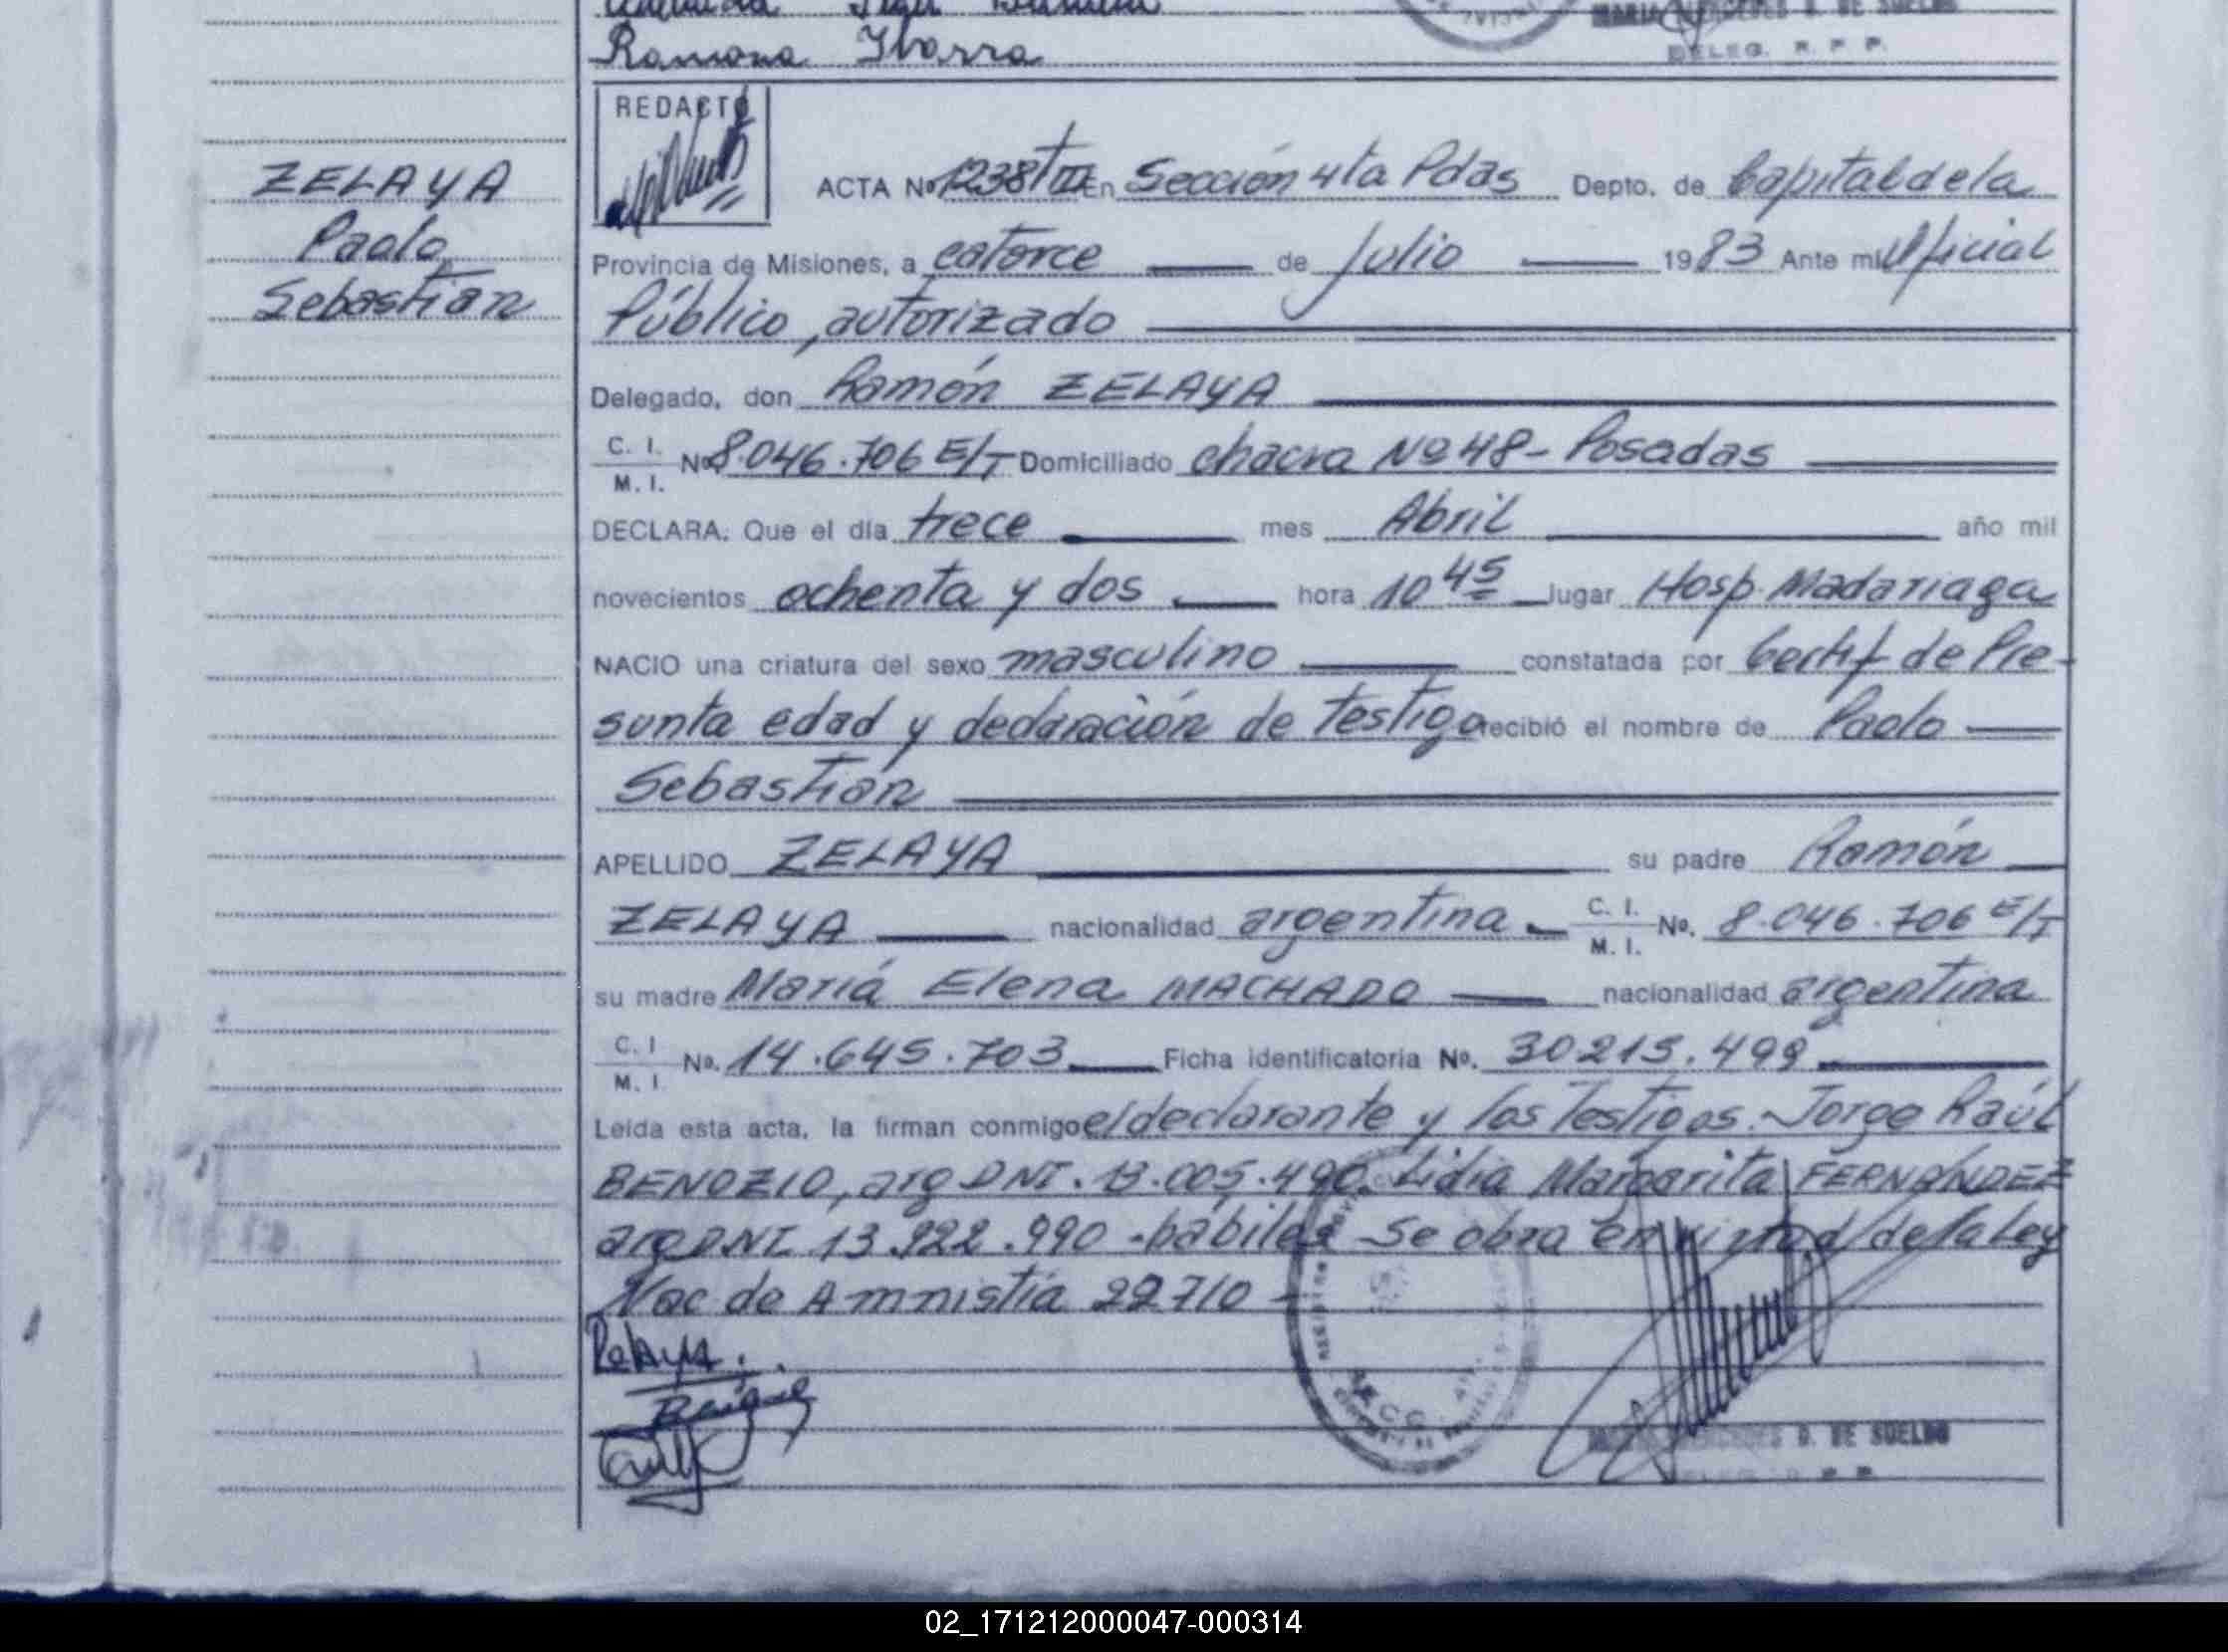 Ramona Ibarra
MARIA MERCEDES D. DE SUELDO
DELEG. R. P. P.
REDACTÓ
ZELAYA
Paolo
Sebastián
ACTA Nº 1238 T III En Sección 4ta Pdas Depto. de Capital de la
Provincia de Misiones, a catorce de Julio 1983 Ante mi Oficial
Público, autorizado
Delegado, don Ramón ZELAYA
C. I.
M. I.
Nº 8.046.706 E/T Domiciliado chacra Nº 48 - Posadas
DECLARA: Que el día trece mes Abril año mil
novecientos ochenta y dos hora 10 45 lugar Hosp. Madariaga
NACIO una criatura del sexo masculino constatada por Certif de Pre-
sunta edad y declaración de testigo recibió el nombre de Paolo
Sebastián
APELLIDO ZELAYA su padre Ramón
ZELAYA nacionalidad argentina C. I. M. I. Nº. 8.046.706 E/T
su madre Mariá Elena MACHADO nacionalidad argentina
C. I M. I. Nº. 14.645.703 Ficha identificatoria Nº. 30215.499
Leída esta acta, la firman conmigo el declarante y los testigos. Jorge Raúl
BENOZIO, arg DNI. 13.005.490. Lidia Margarita FERNANDEZ
arg DNI 13.922.990 - hábiles Se obra en virtud de la Ley
Nac de Amnistía 22710 -
D. DE SUELDO
02_171212000047-000314